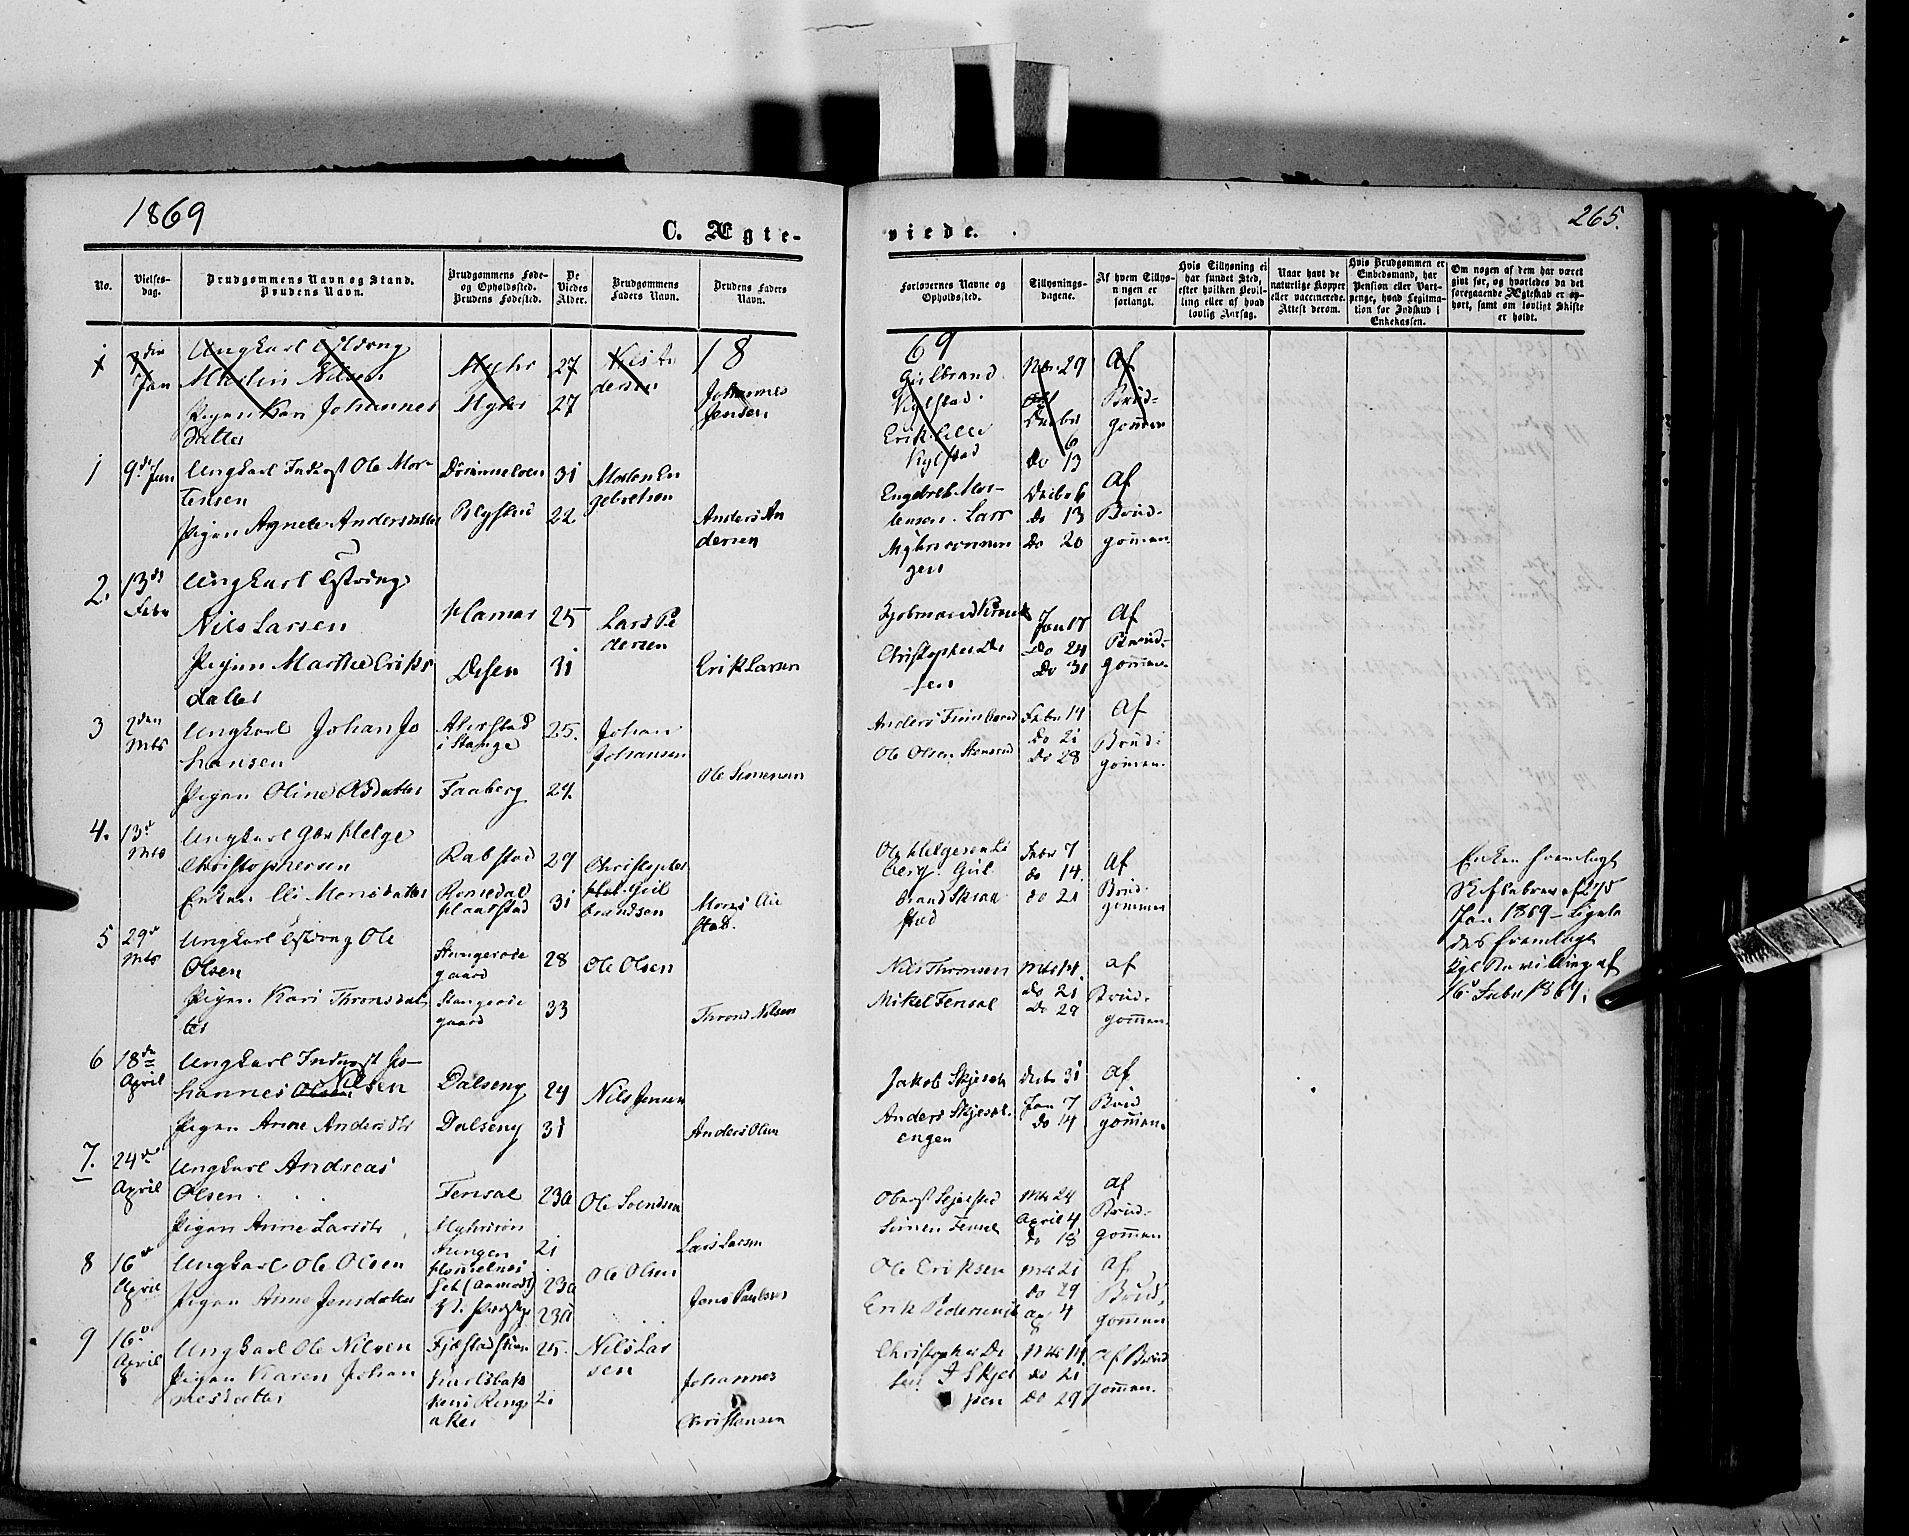 1869
265.
C. Ægte-
viede.
No.
Vielses-
dag.
Brudgommens Navn og Stand.
Brudens Navn.
Brudgommens Føde-
og Opholdssted.
Brudens Fødested.
De
Viedes
Alder.
Brudgommens
Faders Navn.
Brudens Faders
Navn.
Forlovernes Navne og
Opholdssted.
Tillysnings-
dagene.
Af hvem Tillys-
ningen er
forlangt.
Hvis Tillysning ei
har fundet Sted,
efter hvilken Bevil-
ling eller af hvad
lovlig Aarsag.
Naar havt de
naturlige Kopper
eller vaccinerede.
Attest derom.
Hvis Brudgommen er
Embedsmand, har
Pension eller Vart-
penge, hvad Legitima-
tion for Indskud i
Enkekassen.
Om nogen af dem har været
gift før, og hvorledes da det
foregaaende Ægteskab er op-
hørt, samt om lovligt Skifte
er holdt.
18
69
1
Jan
Ungkarl
Martin Nilsen
Pigen Kari Johannes
datter
Myhr 27
Myhr 27
Nils An
dersen
Johannes
Jensen
Gulbrand
Kylstad.
Erik Lille
Kylstad
Nbr. 29
Decbr
6
Do 13
Af
Brud-
gommen
1 9de Jan
Ungkarl Inderst Ole Mor-
tensen
Pigen Agnete Andersdatter
31
22
Morten En
gebretsen
Anders An
dersen
Engebret Mor-
tensen. Lars
Decbr 6
Do 13
Do 20
Af
Brud-
gommen.
2. 13de
Febr
Ungkarl
Nils Larsen
Pigen Marthe Eriks
datter
Hamar 25
Desen 31
Lars Pe
dersen
Erik Larsen
Christopher De
sen
Jan 17
Do 24
Do 31
Af
Brud-
gommen
3 2den
Mts
Ungkarl Johan Jo
hansen
Pigen Oline Olsdatter
i Stange
Faaberg
25.
29.
Johan
Johansen
Ole Simensen
Ole Olsen
Febr 14
Do 21
Do 28
Af
Brud-
gommen.
4. 13de
Mts
Ungkarl Helge
Christophersen
Enken Eli Monsdatter
Rabstad 29
Romedal
31
Christopher
Gul
brandsen
Ole Helgesen Li
berg. Gul
brand Skraa
stad
Febr 7
do 14.
do 21
Af
Brud-
gommen
Enken fremlagt
Skiftebrev af 27de
Jan 1869 – Ligele
des fremlagt
Kgl Bevilling af
16de Febr 1867.
5 29de
Mts
Ungkarl Ole
Olsen
Pigen Kari Thronsdat
ter
gaard
gaard
28
33
Ole Olsen
Thrond Nilsen
Nils Thronsen
Mikel Fensal
Mts 14.
do 21
Do 29
af
Brud-
gommen.
6 18de
April
Ungkarl Inderst Jo-
hannes Nilsen
Pigen Anne Andersdtr
Dalseng 29
Dalseng 31
Nils Jensen
Anders Olsen
Jakob Skjeset
Anders Skjeset-
engen
Decbr 31
Jan 7
Do 14
Af
Brud
gommen.
7. 24de
April
Ungkarl Andreas
Olsen.
Pigen Anne Larsdtr
Fensal 23a
21
Ole Svendsen
Lars Larsen
Simen Fensal
Mts 24
April 4
Do 18
af
Brud-
gommen
8 16de
April
Ungkarl Ole Olsen
Pigen Anne Jensdatter
23a
23a
Ole Olsen
Jens Paulsen
Ole Eriksen
Mts 21
do 29
Ap 4
Af
Brud-
gommen
9 16de
April
Ungkarl Ole Nilsen
Pigen Karen Johan
nesdatter
Ringsaker
25.
21
Nils Lar
sen
Johannes
Christensen
Christopher De
sen.
Mts 14.
do 21
Do 29
Af Brud
gommen.